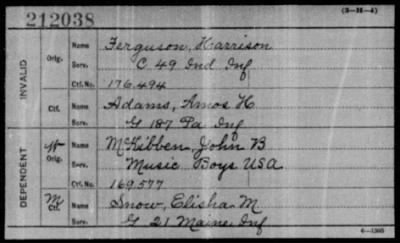 212038
(3-H-4)
INVALID
Orig. Name Ferguson, Harrison
Serv. C 49 Ind Inf
Ctf. No. 176.494
Ctf. Name Adams, Amos H
Serv. G 187 Pa Inf
DEPENDENT
W Orig. Name McKibben, John B
Serv. Music Boys USA
Ctf. No. 169.577
M Ctf. Name Snow, Elisha M
Serv. G 21 Maine Inf